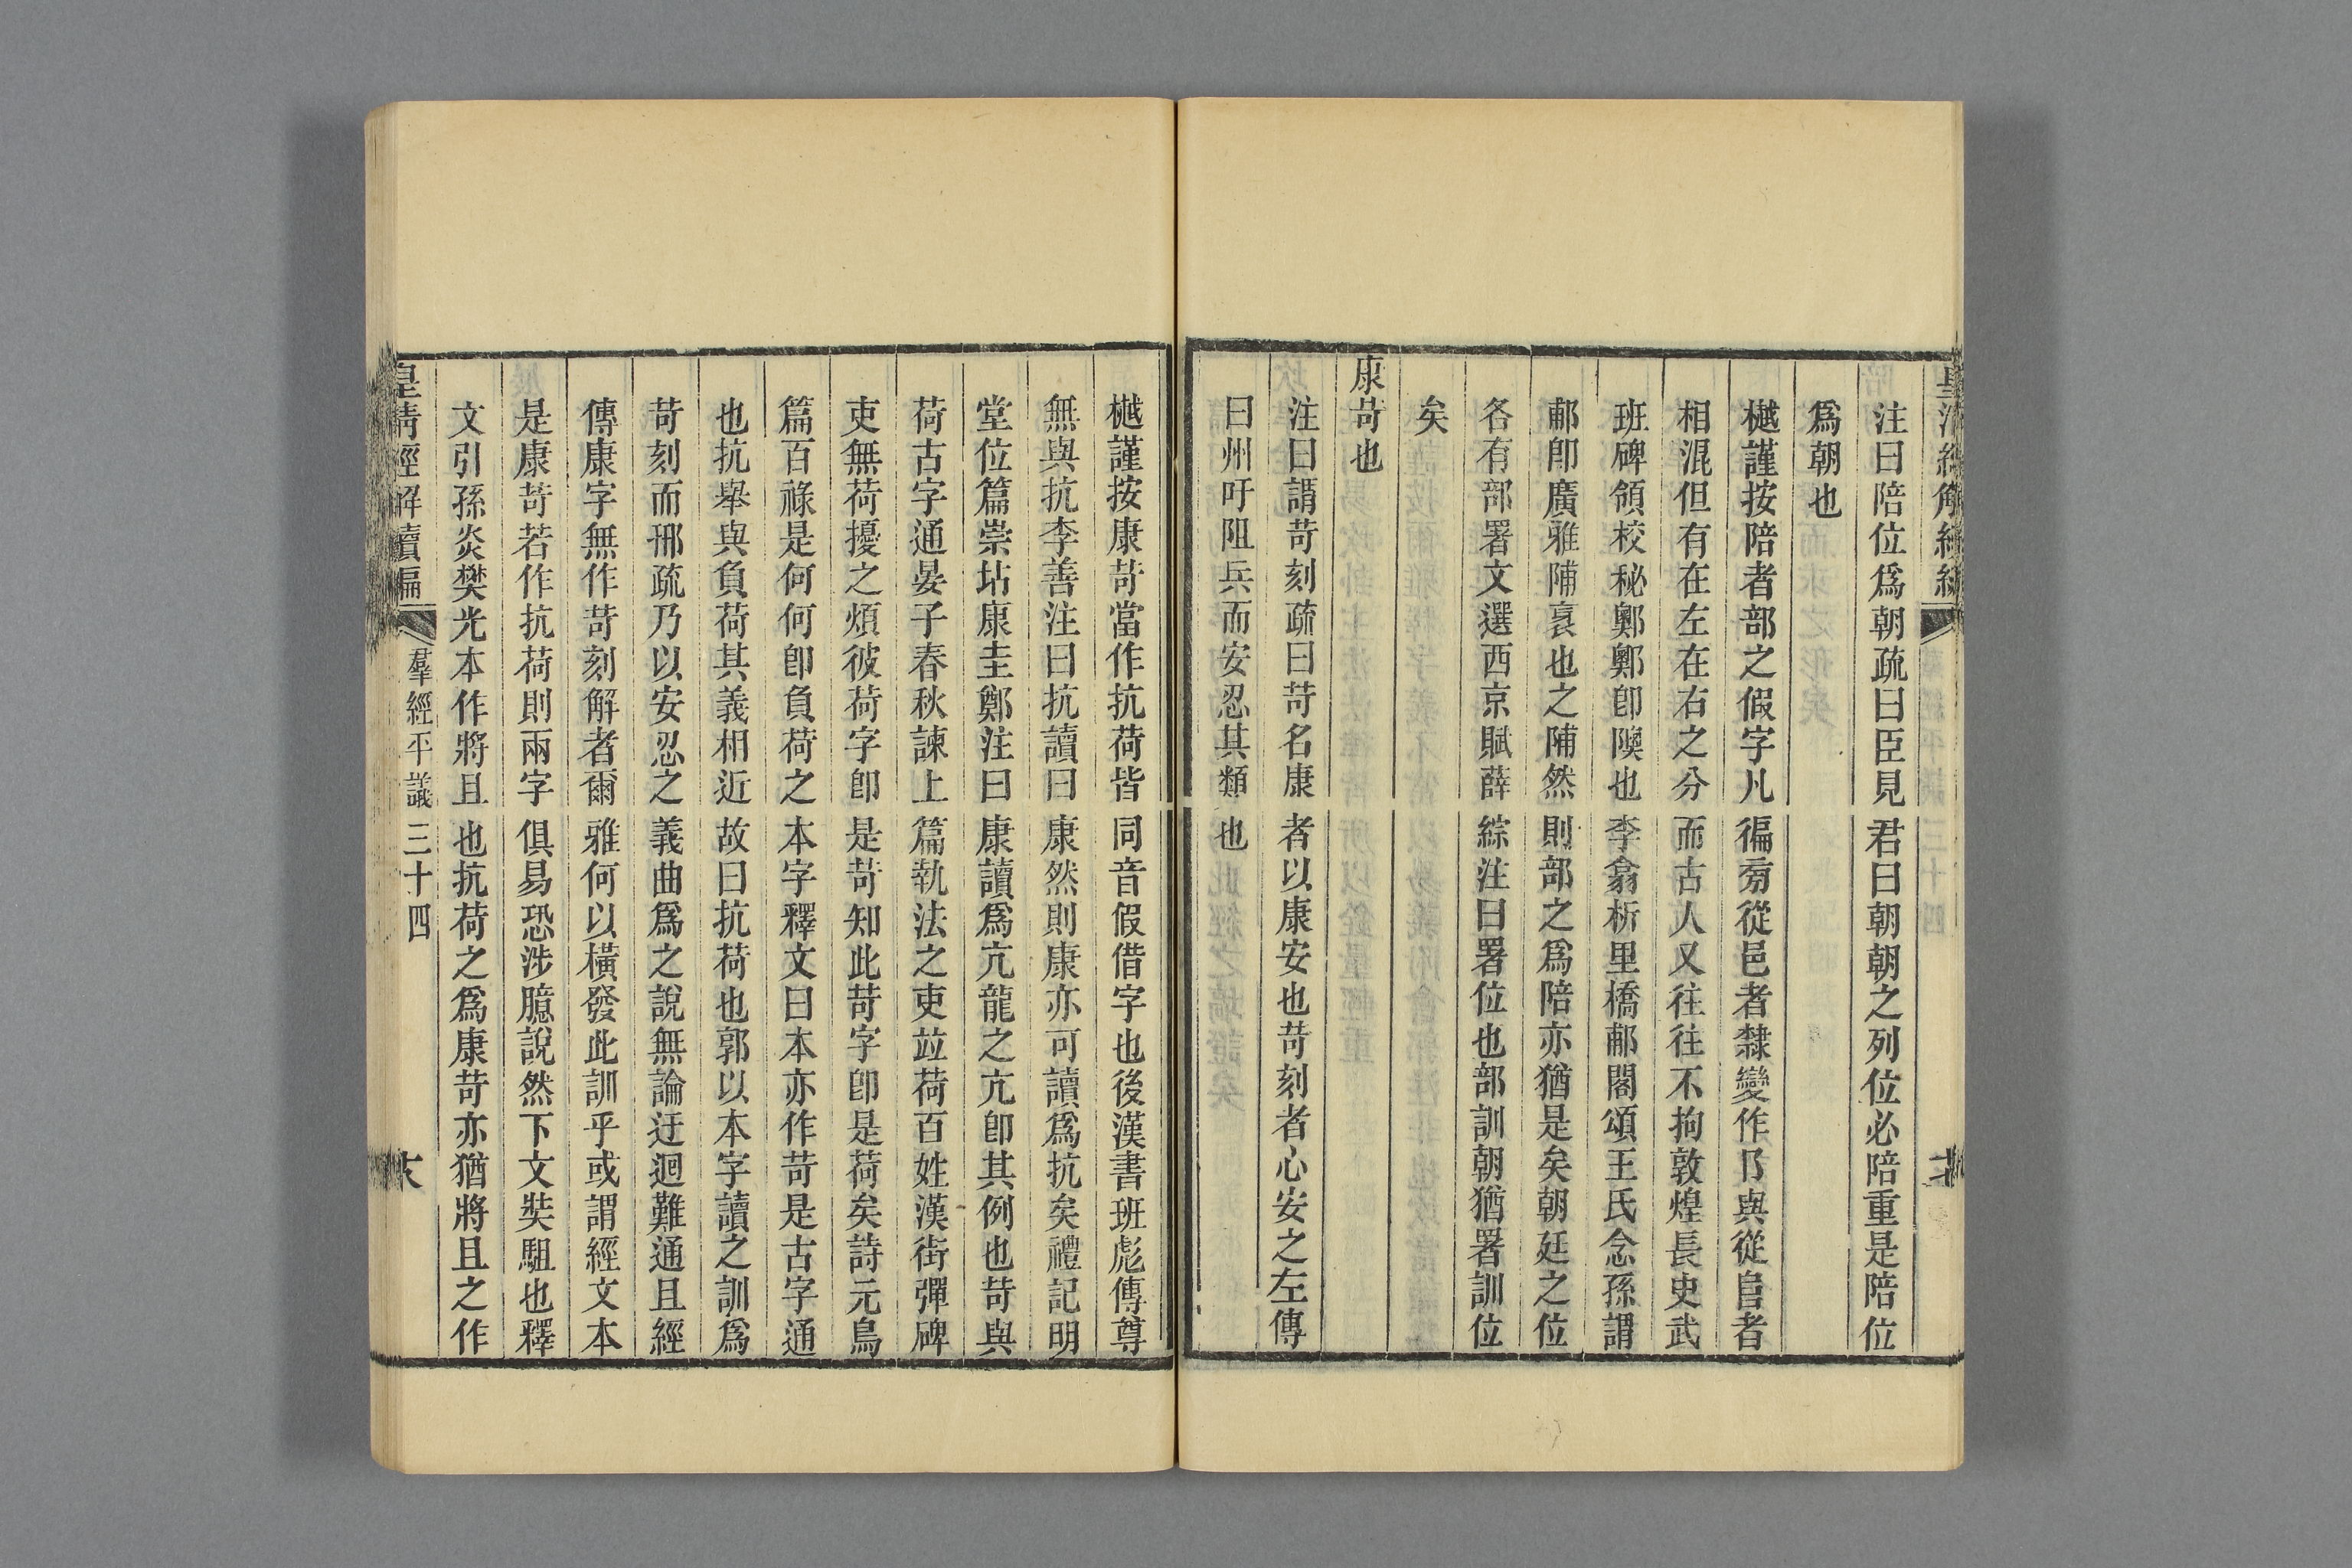 注曰陪位爲朝疏曰臣見君曰朝朝之列位必陪重是陪位
爲朝也
樾謹按陪者部之假字凡徧㫄從邑者隸變作阝與從𨸏者
相混但有在左在右之分而古人又往往不拘敦煌長史武
班碑領校秘鄭鄭卽隩也李翕析里橋郙閣頌王氏念孫謂
郙卽廣雅陠衺也之陠然則部之爲陪亦猶是矣朝廷之位
各有部署文選西京賦薛綜注曰署位也部訓朝猶署訓位
矣
康苛也
注曰謂苛刻疏曰苛名康者以康安也苛刻者心安之左傳
曰州吁阻兵而安忍其類也
樾謹按康苛當作抗荷皆同音假借字也後漢書班彪傳尊
無與抗李善注曰抗讀曰康然則康亦可讀爲抗矣禮記明
堂位篇崇坫康圭鄭注曰康讀爲亢龍之亢卽其例也苛與
荷古字通晏子春秋諫上篇執法之吏竝荷百姓漢街彈碑
吏無荷擾之煩彼荷字卽是苛知此苛字卽是荷矣詩元鳥
篇百祿是何何卽負荷之本字釋文曰本亦作苛是古字通
也抗舉與負荷其義相近故曰抗荷也郭以本字讀之訓爲
苛刻而邢疏乃以安忍之義曲爲之說無論迂迴難通且經
傳康字無作苛刻解者爾雅何以橫發此訓乎或謂經文本
是康苛若作抗荷則兩字俱易恐涉臆說然下文奘駔也釋
文引孫炎樊光本作將且也抗荷之爲康苛亦猶將且之作
皇淸經解續編 羣經平議三十四